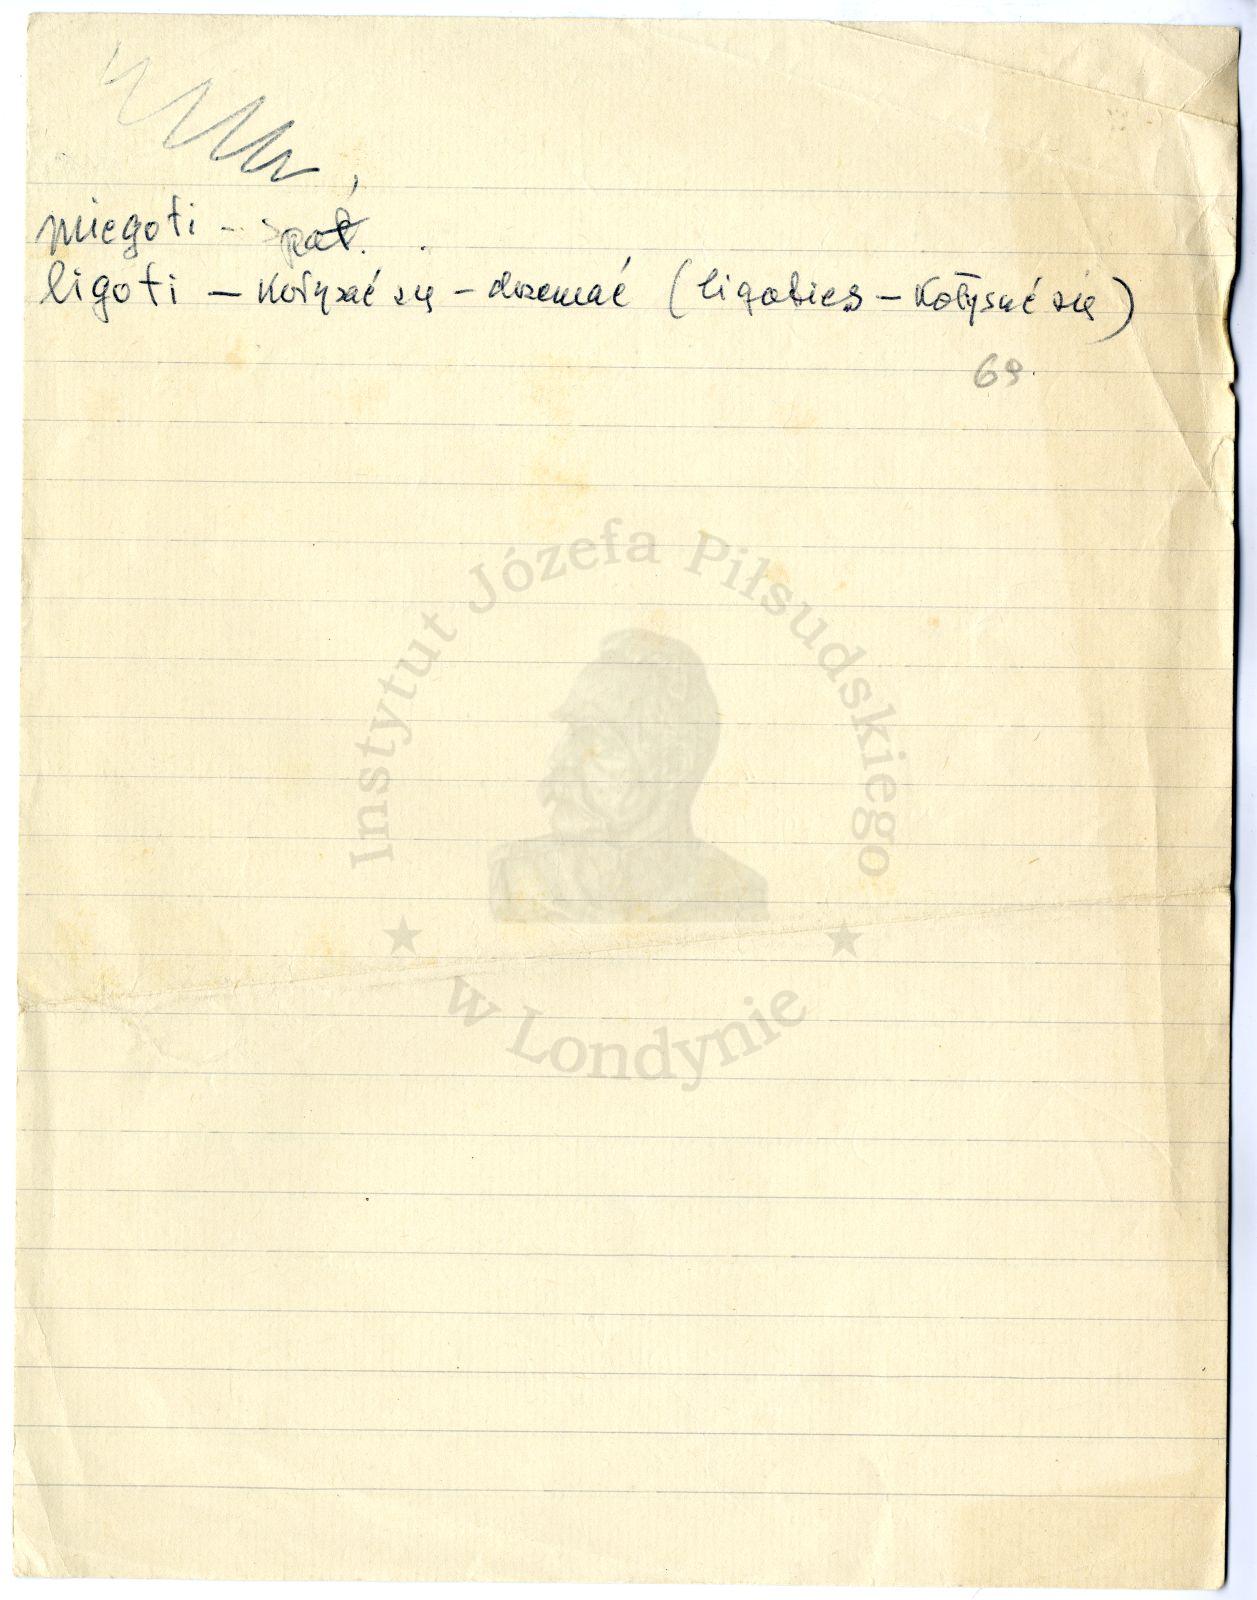 miegoti - spać.
ligoti - kołysać się - drzemać (ligoties - kołysać się)
69.
Instytut Józefa Piłsudskiego
w Londynie